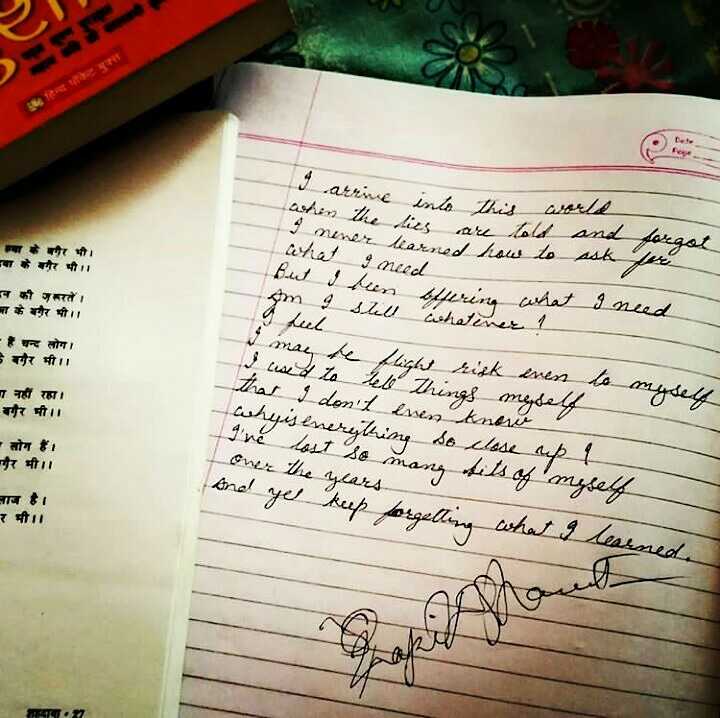 हिन्द पॉकेट बुक्स
हवा के बग़ैर भी।
के बग़ैर भी।।
की ज़रूरतें।
के बग़ैर भी।।
हैं चन्द लोग।
बग़ैर भी।।
नहीं रहा।
बग़ैर भी।।
लोग हैं।
भी।।
लाज है।
भी।।
27
Date
Page
I arrive into this world
when the lies are told and forgot
I never learned how to ask for
what I need
But I been offering what I need
Am I still whatever?
I feel
I may be flight risk even to myself
I used to tell things myself
that I don't even know
why is everything so close up?
I've lost so many bits of myself
over the years
And yet keep forgetting what I learned.